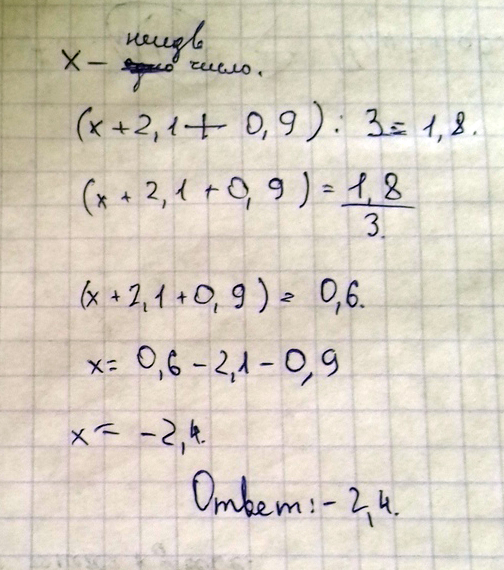 неизв
x – число.
(x + 2,1 + 0,9) : 3 = 1,8.
(x + 2,1 + 0,9) = 1,8
3.
(x + 2,1 + 0,9) = 0,6.
x = 0,6 – 2,1 – 0,9
x = –2,4.
Ответ: – 2,4.